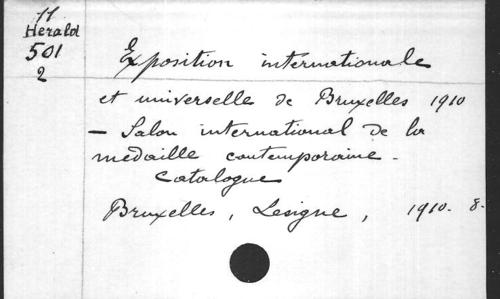 11
Herald
501
2
Exposition internationale
et universelle de Bruxelles 1910
— Salon international de la
médaille contemporaine -
Catalogue
Bruxelles, Lesigne, 1910. 8.